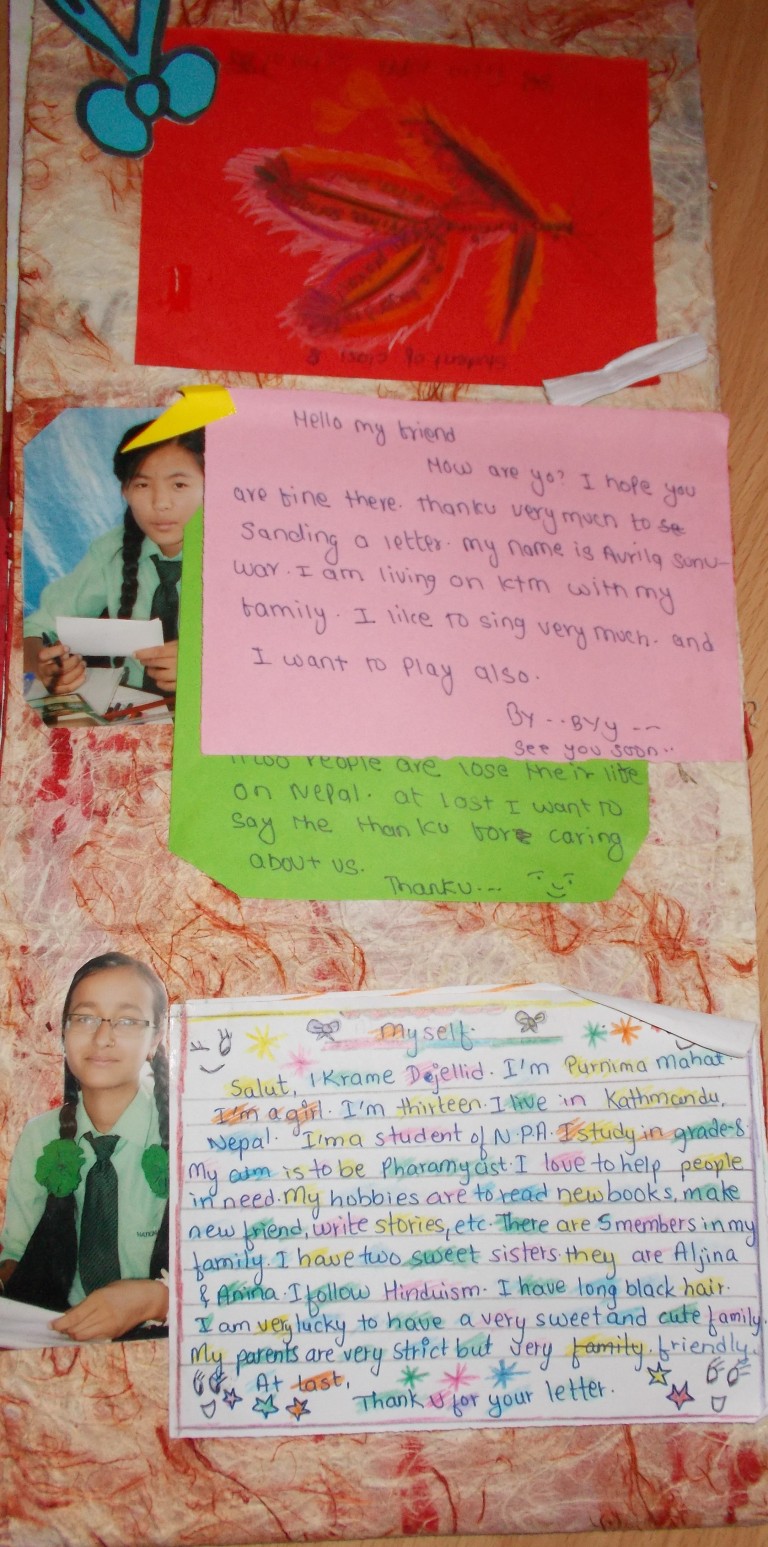 student of class 8
Hello my friend
How are yo? I hope you
are fine there. thanku very much to se
Sanding a letter. my name is Avrila sunu-
war. I am living on ktm with my
family. I like to sing very much. and
I want to play also.
By -- Byy --
see you soon..
People are lose their life
on Nepal. at lost I want to
say the thanku fore caring
about us.
Thanku...
Myself.
Salut, IKrame Dejellid. I'm Purnima Mahat.
I'm a girl. I'm thirteen. I live in Kathmandu,
Nepal. I'm a student of N.P.A. I study in grade-8.
My aim is to be Pharamycist. I love to help people
in need. My hobbies are to read new books, make
new friend, write stories, etc. There are 5 members in my
family. I have two sweet sisters they are Aljina
& Anina. I follow Hinduism. I have long black hair.
I am very lucky to have a very sweet and cute family.
My parents are very strict but very family friendly.
At last,
Thank u for your letter.